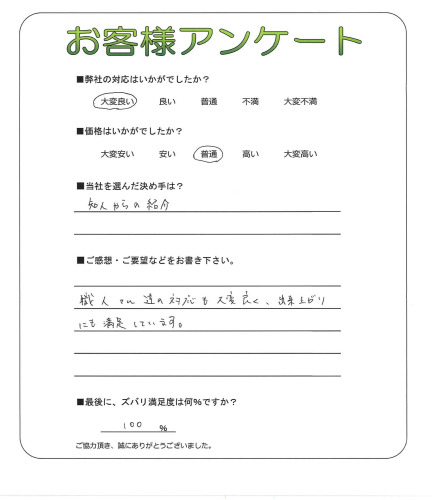 お客様アンケート
■弊社の対応はいかがでしたか？
大変良い 良い 普通 不満 大変不満
■価格はいかがでしたか？
大変安い 安い 普通 高い 大変高い
■当社を選んだ決め手は？
知人からの紹介
■ご感想・ご要望などをお書き下さい。
職人さん達の対応も大変良く、出来上がり
にも満足しています。
■最後に、ズバリ満足度は何%ですか？
100 %
ご協力頂き、誠にありがとうございました。